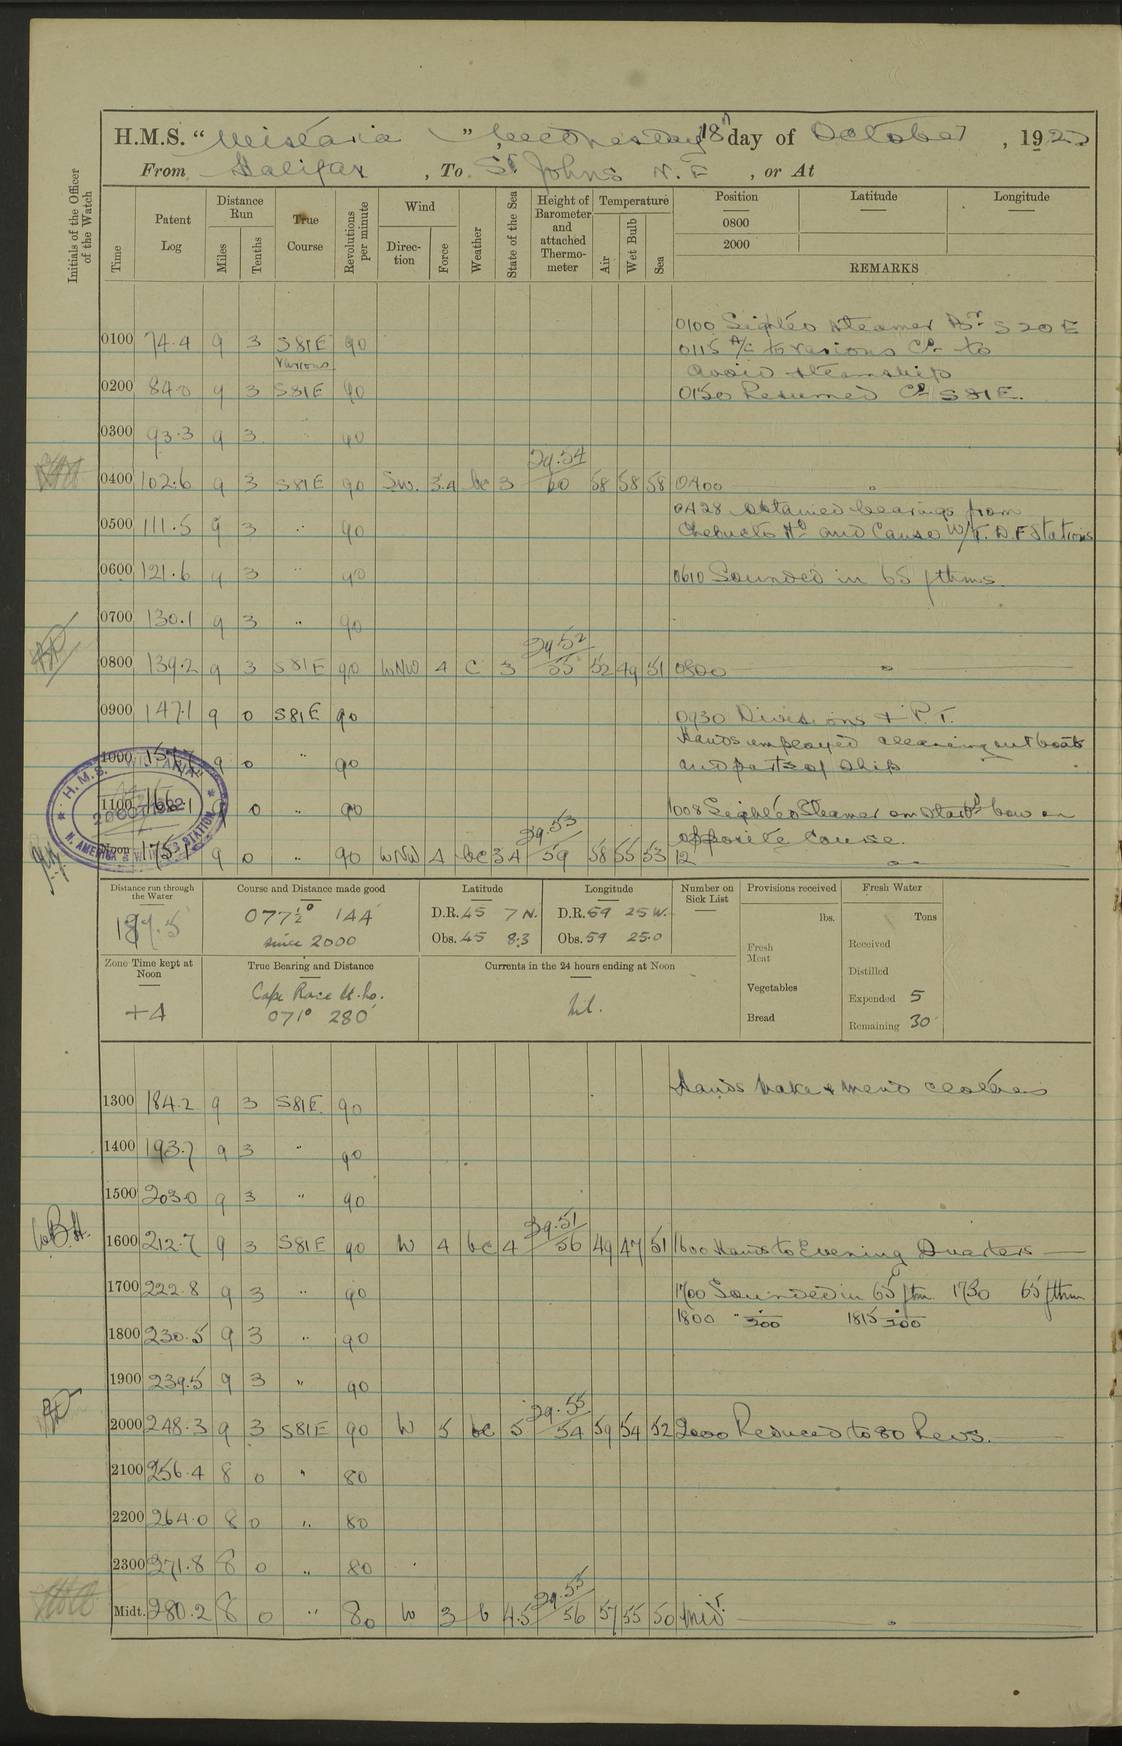 H.M.S. “Wistaria” Wednesday 18th day of October, 1922
From Halifax, To St Johns N.F., or At
Initials of the Officer of the Watch
Time Patent Log Distance Run Miles Tenths True Course Revolutions per minute Wind Direction Force Weather State of the Sea Height of Barometer and attached Thermometer Temperature Air Wet Bulb Sea Position Latitude Longitude
0800
2000
REMARKS
0100 Sighted steamer Brg S 20 E
0100 74.4 9 3 S81E 90 0115 A/C to various Co to
various avoid steamship
0200 84.0 9 3 S81E 90 0150 Resumed Co S81E.
0300 93.3 9 3 " 90
29.54
0400 102.6 9 3 S81E 90 SW. 3.4 bc 3 60 58 58 58 0400
0428 obtained bearings from
0500 111.5 9 3 " 90 Chebucto Hd and Canso W/T. D.F Stations
0600 121.6 9 3 " 90 0610 Sounded in 65 fthms.
0700 130.1 9 3 " 90
29.52
0800 139.2 9 3 S81E 90 WNW 4 c 3 55 52 49 51 0800
0900 147.1 9 0 S81E 90 0930 Divisions & P.T.
Hands employed cleaning out boats
1000 9 0 " 90 and parts of ship
H.M.S. "WISTARIA"
20 OCT 1922
N. AMERICA & W. INDIES STATION
1100 9 0 " 90 1008 Sighted Steamer on Starbd bow on
29.53 opposite course.
Noon 175.1 9 0 " 90 WNW 4 bc 3 4 59 58 55 53 12
Distance run through the Water Course and Distance made good Latitude Longitude Number on Sick List Provisions received Fresh Water
077½° 144' D.R. 45 7 N. D.R. 59 25 W. lbs. Tons
since 2000 Obs. 45 8.3 Obs. 59 25.0 Fresh Meat Received
Distilled
Zone Time kept at Noon True Bearing and Distance Currents in the 24 hours ending at Noon Vegetables
+4 Cape Race Lt. Ho. Nil. Expended 5
071° 280' Bread Remaining 30
Hands make & mend clothes
1300 184.2 9 3 S81E 90
1400 193.7 9 3 " 90
1500 203.0 9 3 " 90
29.51
1600 212.7 9 3 S81E 90 W 4 bc 4 56 49 47 51 1600 Hands to Evening Quarters
1700 222.8 9 3 " 90 1700 Sounded in 65 ftm 1730 65 fthm
1800 " 300 1815 300
1800 230.5 9 3 " 90
1900 239.5 9 3 " 90
29.55
2000 248.3 9 3 S81E 90 W 5 bc 5 54 59 54 52 2000 Reduced to 80 Revs.
2100 256.4 8 0 " 80
2200 264.0 8 0 " 80
2300 271.8 8 0 " 80
29.55
Midt. 280.2 8 0 " 80 W 3 b 4.5 56 57 55 50 Midt.